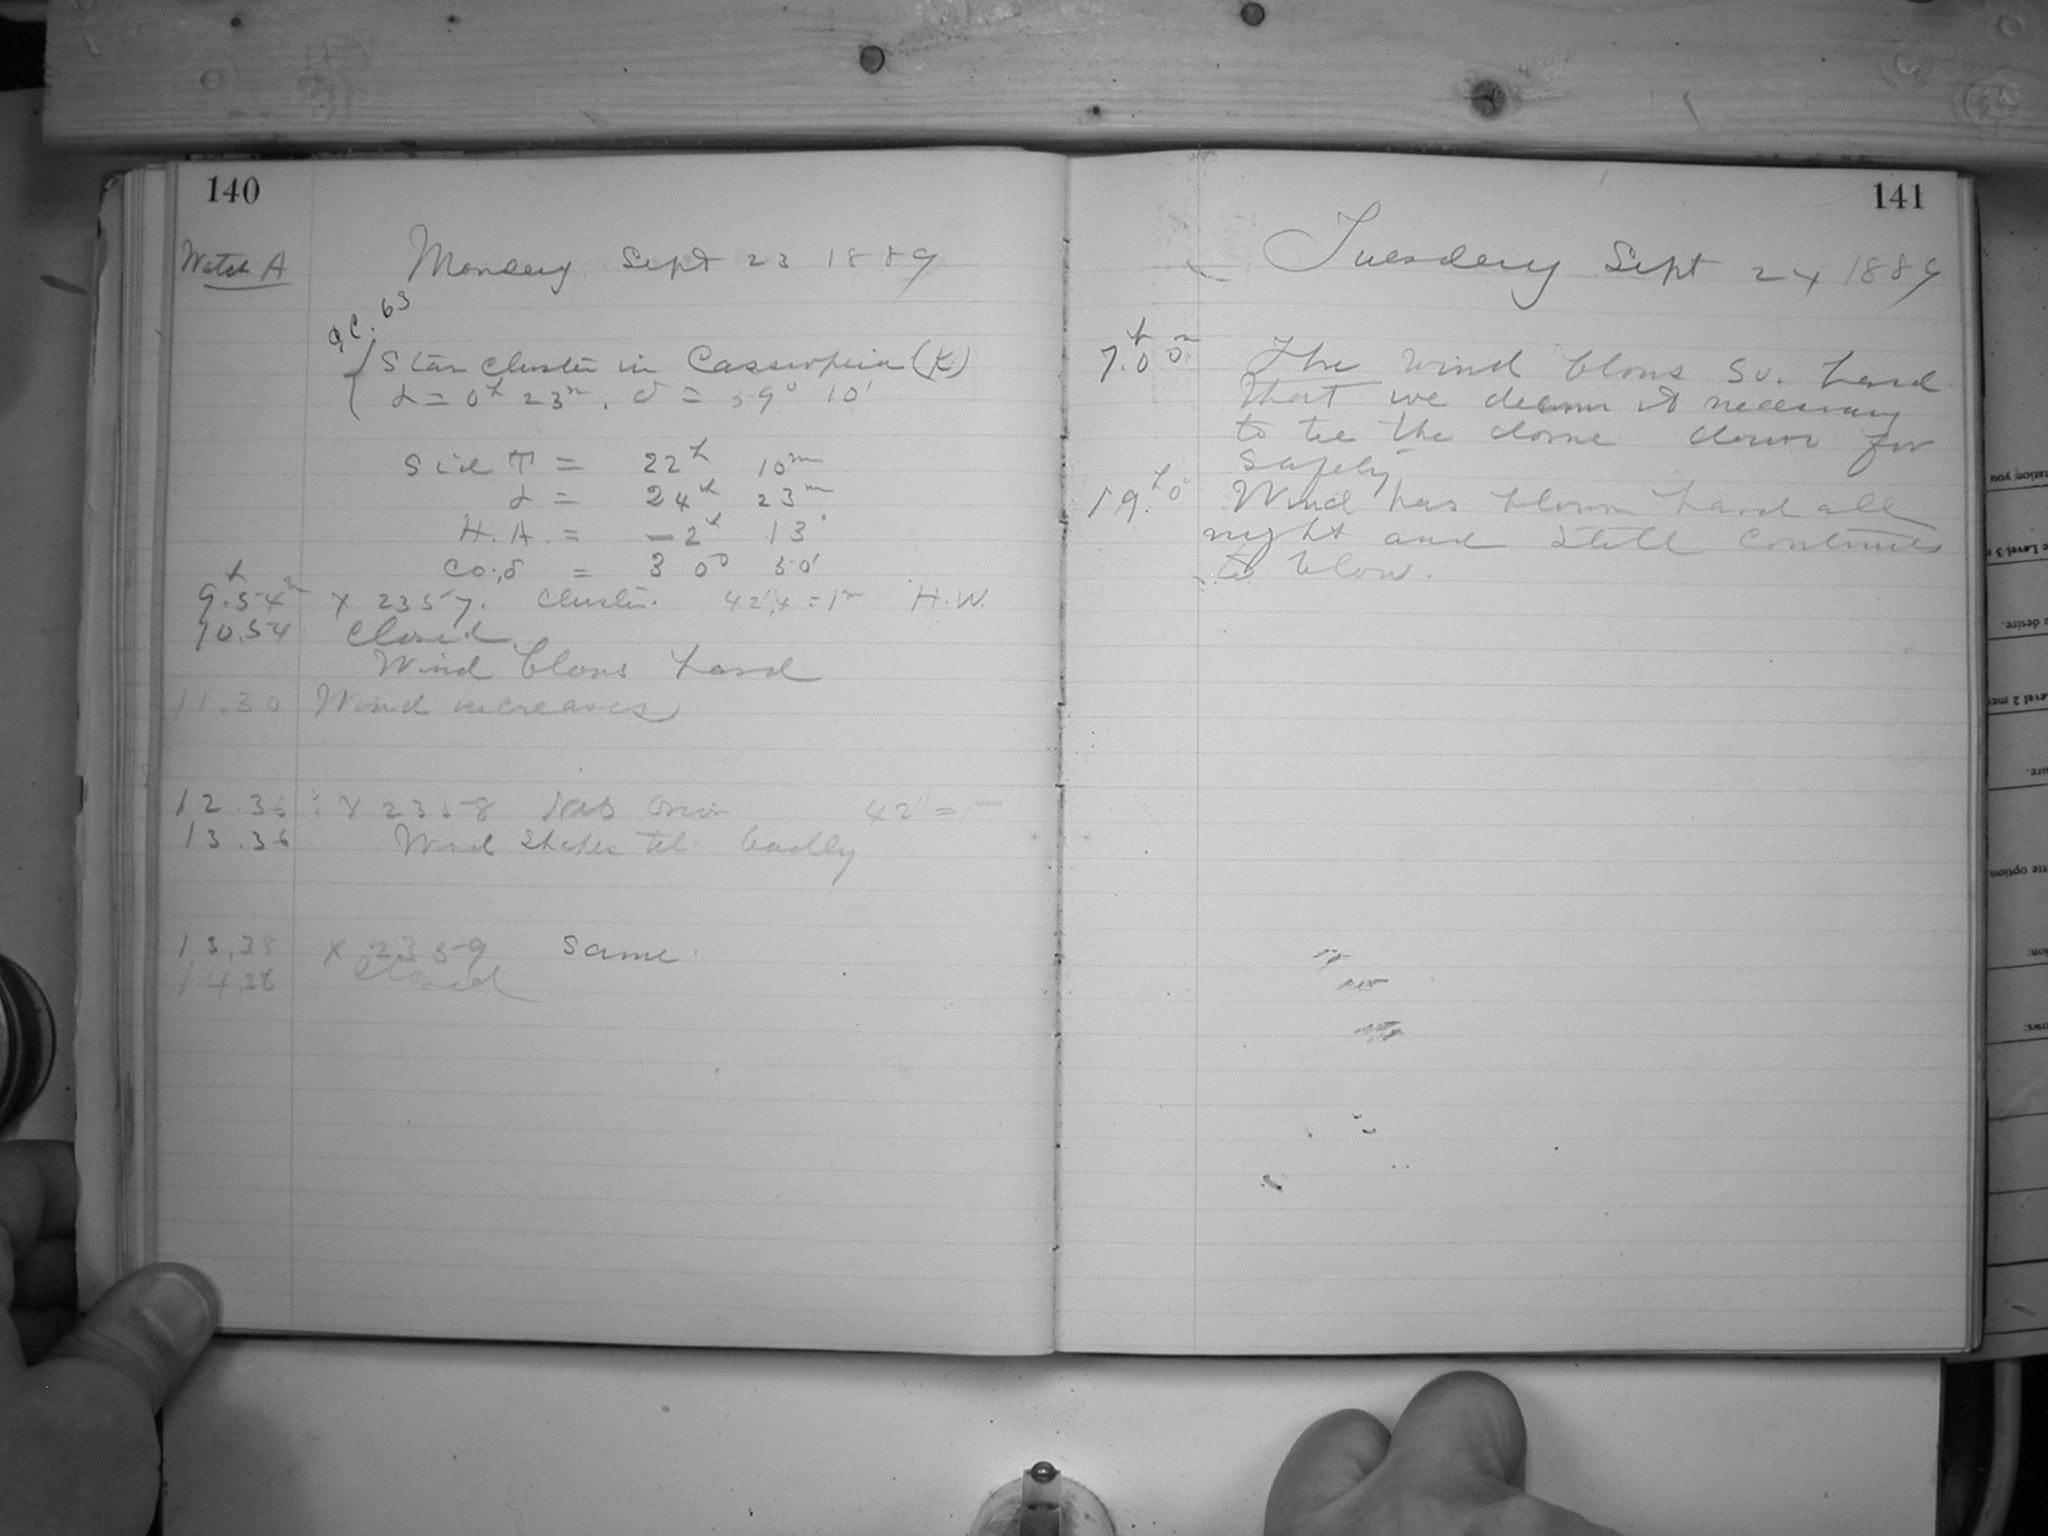 140
Watch A
Monday Sept 23 1889
G.C. 63
Star Cluster in Cassiopeia (K)
α = 0h 23m. δ = 59° 10'
Sid T = 22h 10m
α = 24h 23m
H.A. = -2h 13
Co. δ = 30° 50'
9h.54m X 2357. Cluster. 42".4 = 1m H.W.
10.54 Closed
Wind blows hard
11.30 Wind increases
12.36 X 2358 Neb Orion 42" = 1m
13.36 Wind Shakes tel. badly
13.38 X 2359 Same.
14.38 Closed
141
Tuesday Sept 24 1889
7h.0m The wind blows so hard
that we deem it necessary
to tie the dome down for
safety
19h.0 Wind has blown hard all
night and still continues
to blow.